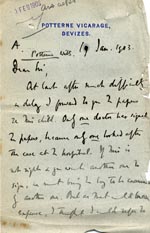 1 FEB 1903
POTTERNE VICARAGE,
DEVIZES.
A.
Potterne Wilts. 19 Jan. 1903.
Dear Sir,
At last after much difficulty
& delay I forward to you the papers
for this child. Only one doctor has signed
the papers, because only one looked after
the case at the hospital. If this is
not right & you need another one to
sign, we must bring the boy to be examined
of another one. But as that will be
expense, I thought I